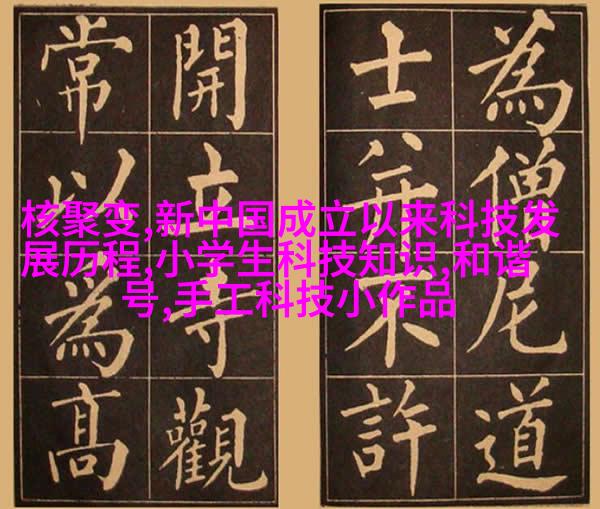 核聚变,新中国成立以来科技发
展历程,小学生科技知识,和谐
号,手工科技小作品
為僧尼道
士并不許
開立寺觀
常以為高